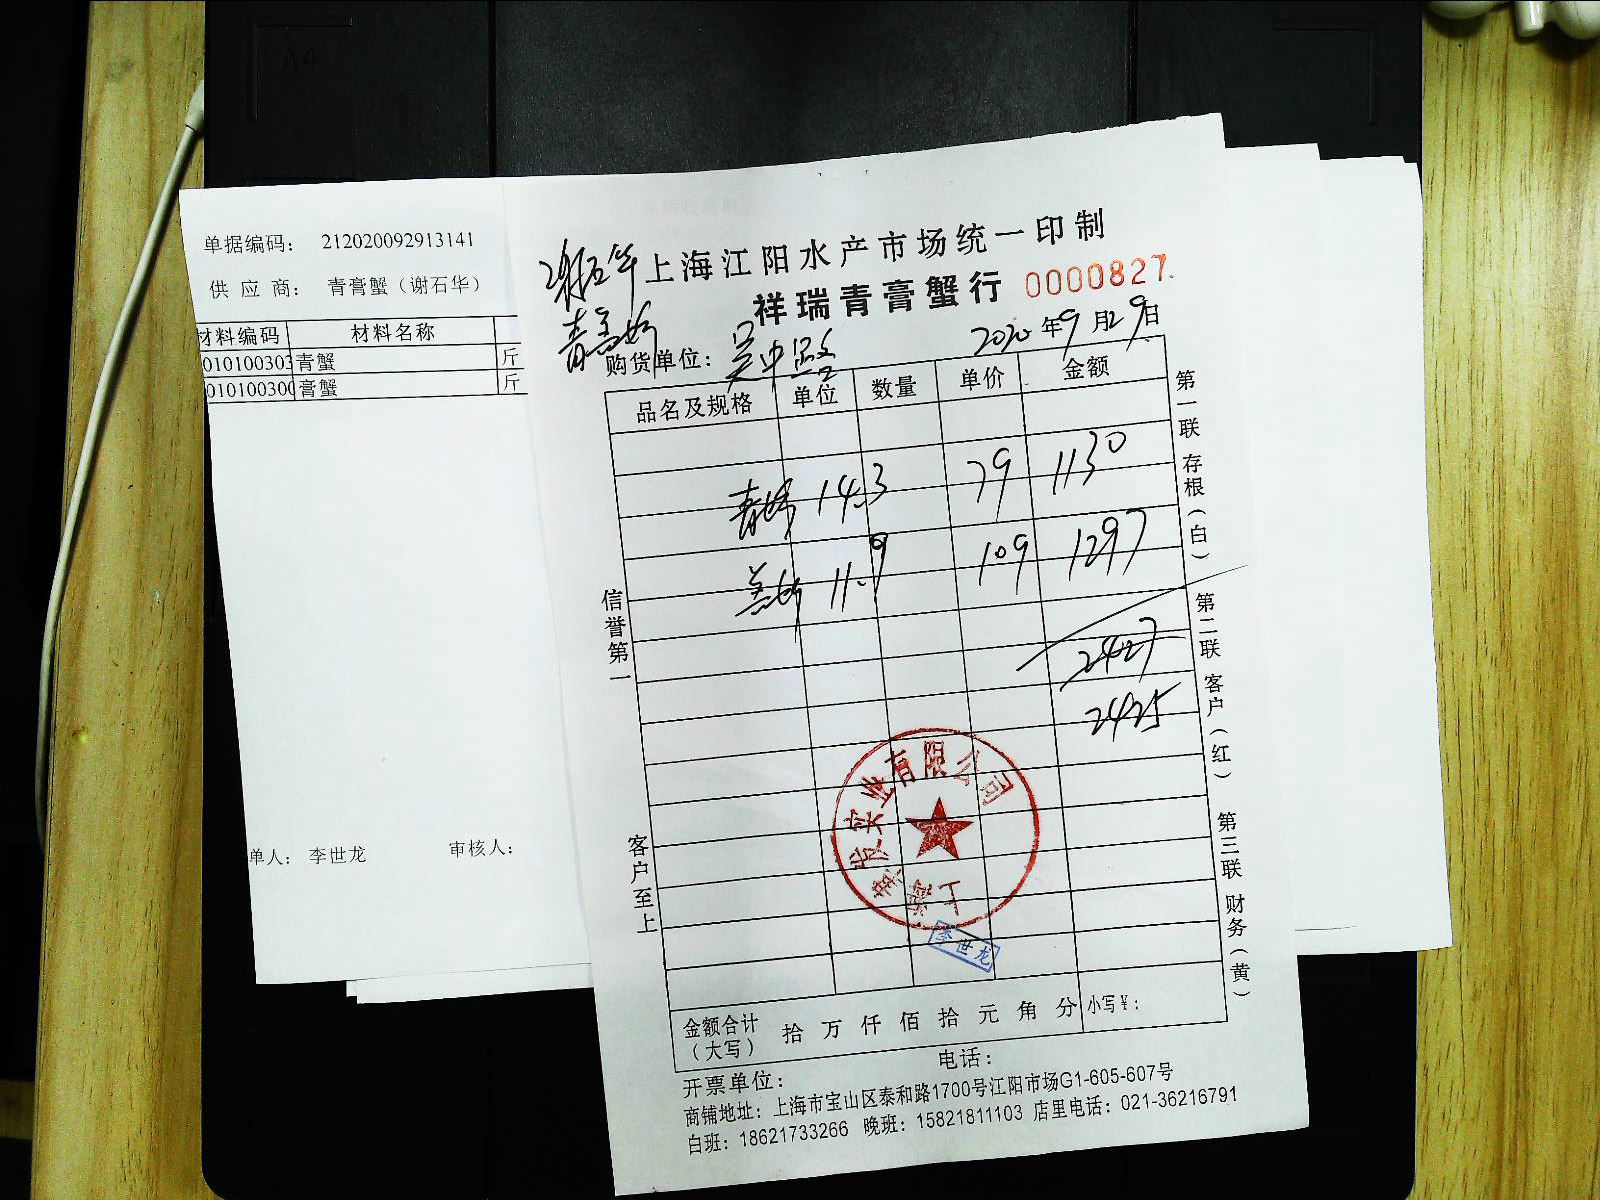 单据编码： 212020092913141
供 应 商： 青膏蟹（谢石华）
材料编码 材料名称
010100303 青蟹 斤
010100300 膏蟹 斤
单人： 李世龙 审核人：
谢石华
青膏蟹
上海江阳水产市场统一印制
祥瑞青膏蟹行 0000827
购货单位： 2020 年 9 月 29 日
品名及规格 单位 数量 单价 金额
青蟹 14.3 79 1130
膏蟹 11.9 109 1297
2427
2425
上海 发实业有限公司
李世龙
金额合计（大写） 拾 万 仟 佰 拾 元 角 分 小写￥：
开票单位： 电话：
商铺地址：上海市宝山区泰和路1700号江阳市场G1-605-607号
白班：18621733266 晚班：15821811103 店里电话：021-36216791
信誉第一
客户至上
第一联 存根（白）
第二联 客户（红）
第三联 财务（黄）